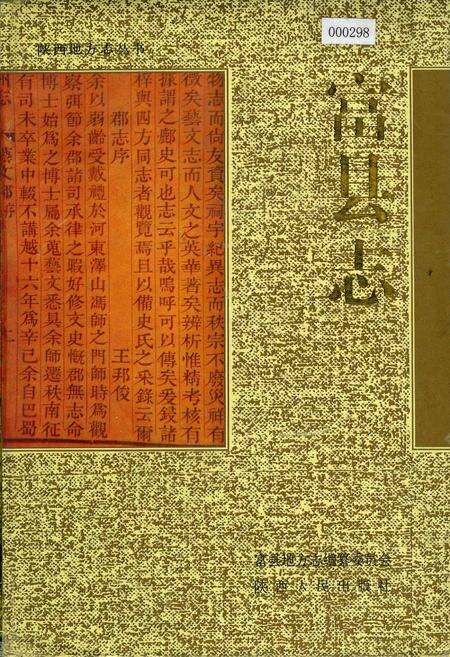 000298
陕西地方志丛书
富县志
物志而尚友資矣祠宇紀異志而秩宗不廢災祥有
徵矣藝文志而人文之英華著矣辨析惟精考核有
據謂之鄜史可也志云乎哉嗚呼可以傳矣爰鋟諸
梓與四方同志者觀覽焉且以備史氏之采錄云爾
郡志序
王邦俊
余以弱齡受戴禮於河東澤山馮師之門師時爲觀
察弭節余郡諮司承律之暇好修文史慨郡無志命
博士始爲之博士屬余蒐藝文悉具余師遷秩南征
有司未卒業中輟不講越十六年爲辛己余自巴蜀
富县地方志编纂委员会
陕西人民出版社